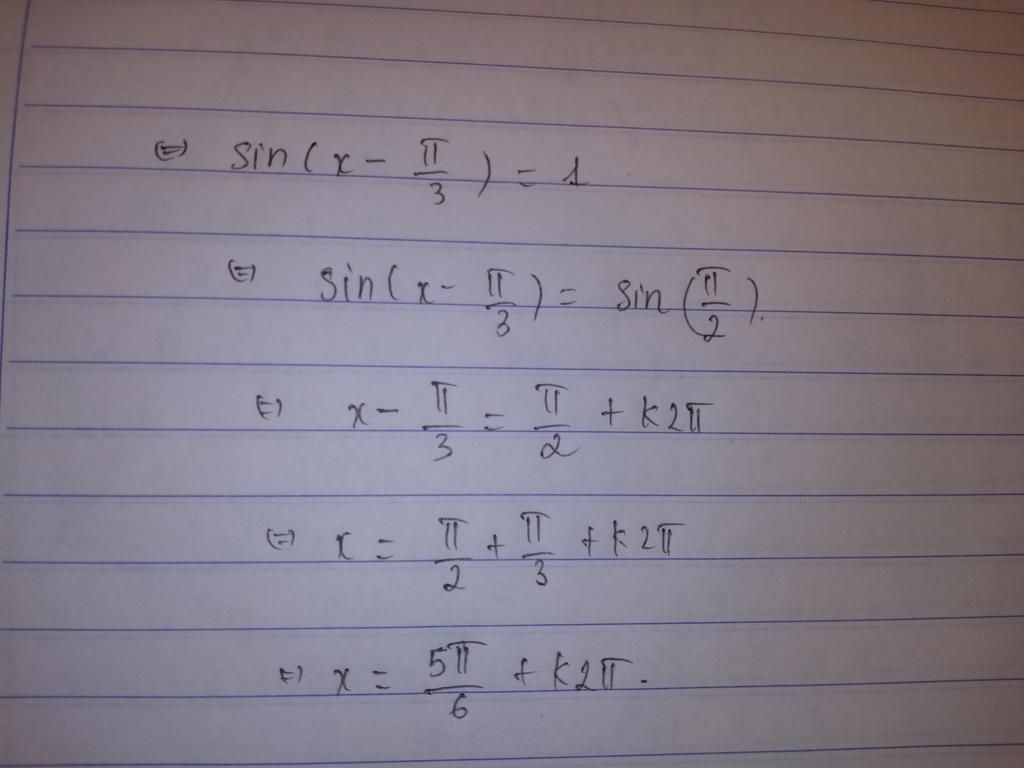 ⇔ sin(x - π/3) = 1
⇔ sin(x - π/3) = sin(π/2).
⇔ x - π/3 = π/2 + k2π
⇔ x = π/2 + π/3 + k2π
⇔ x = 5π/6 + k2π.